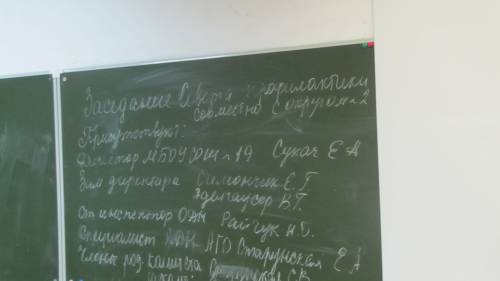 Заседание Совета профилактики
совместно с округом-2
Присутствуют:
Директор МБОУ СОШ № 19 Сукач Е А
Зам директора Симончик Е.Г
Эдельгаусер В.Г.
Ст инспектор ОДН Райчук Н.Б.
Специалист КДН АГО Старунская Е А
Члены род. комитета С.В.